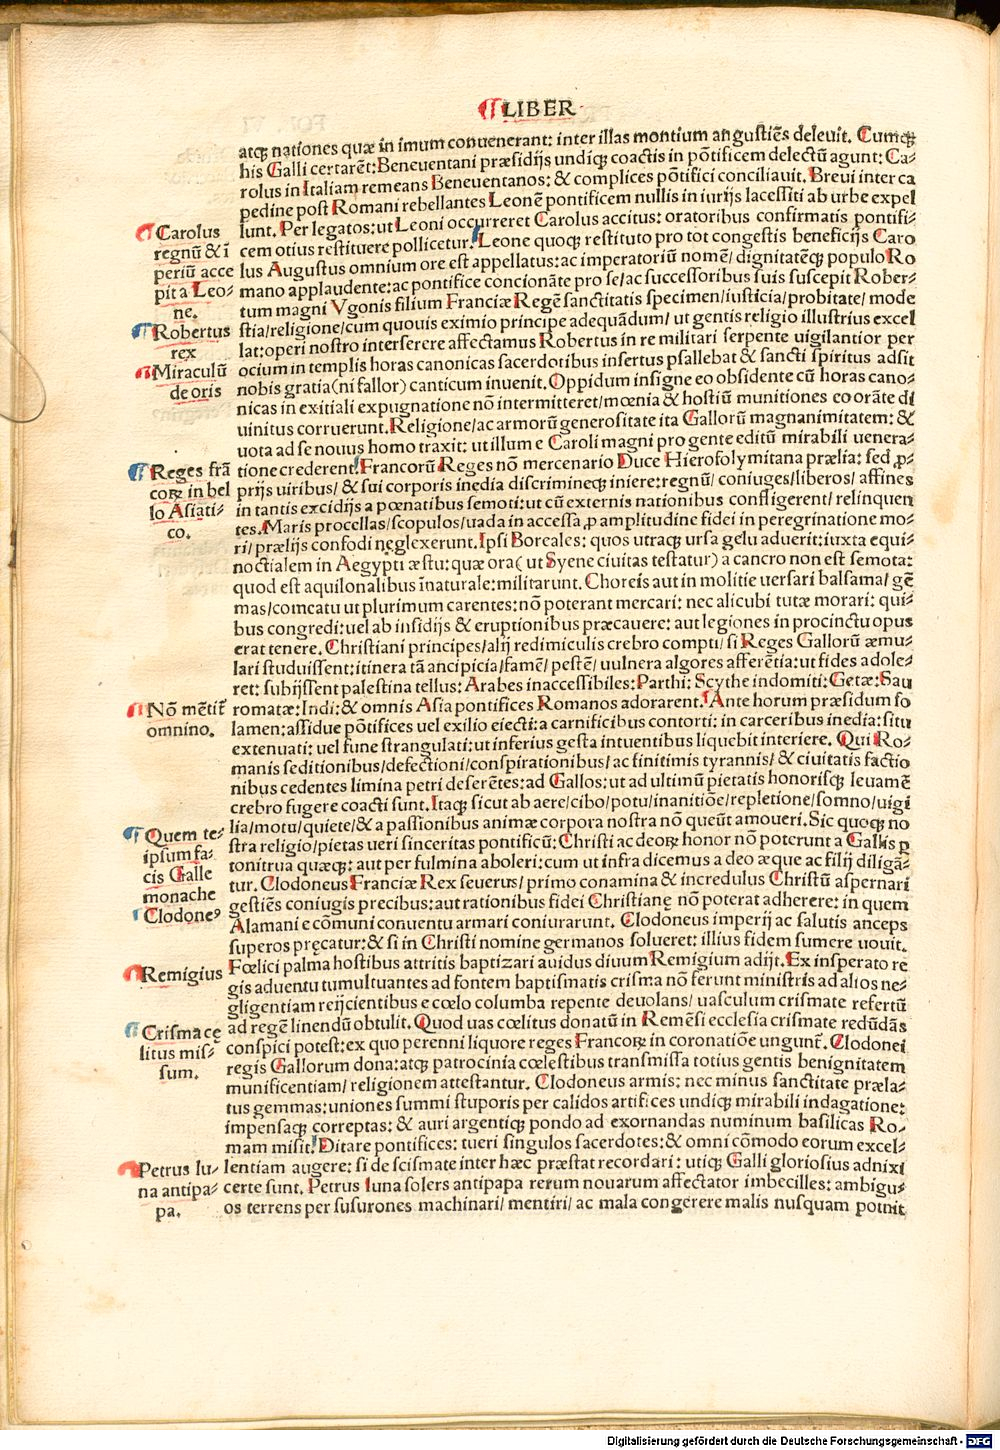 LIBER
atq̃ nationes quæ in imum conuenerant: inter illas montium angustiẽs deleuit. Cumq̃
his Galli certarẽt: Beneuentani præsidijs undiq̃ coactis in põtificem delectũ agunt: Ca-
rolus in Italiam remeans Beneuentanos: & complices põtifici conciliauit. Breui inter ca
pedine post Romani rebellantes Leonẽ pontificem nullis in iurijs lacessiti ab urbe expel
lunt. Per legatos: ut Leoni occurreret Carolus accitus: oratoribus confirmatis pontifi-
cem otius restituere pollicetur. Leone quoq̃ restituto pro tot congestis beneficijs Caro
lus Augustus omnium ore est appellatus: ac imperatoriũ nomẽ/ dignitatẽq̃ populo Ro
mano applaudente: ac pontifice concionãte pro se/ ac successoribus suis suscepit Rober-
tum magni Vgonis filium Franciæ Regẽ sanctitatis specimen/ iusticia/ probitate/ mode
stia/ religione/ cum quouis eximio principe adequãdum/ ut gentis religio illustrius excel
lat: operi nostro interserere affectamus Robertus in re militari serpente uigilantior per
ocium in templis horas canonicas sacerdotibus insertus psallebat & sancti spiritus adsit
nobis gratia (ni fallor) canticum inuenit. Oppidum insigne eo obsidente cũ horas cano-
nicas in exitiali expugnatione nõ intermitteret/ mœnia & hostiũ munitiones eo orãte di
uinitus corruerunt. Religione/ ac armorũ generositate ita Gallorũ magnanimitatem: &
uota ad se nouus homo traxit: ut illum e Caroli magni pro gente editũ mirabili uenera-
tione crederent. Francorũ Reges nõ mercenario Duce Hierosolymitana prælia: sed ꝓ-
prijs uiribus/ & sui corporis inedia discrimineq̃ iniere: regnũ/ coniuges/ liberos/ affines
in tantis excidijs a pœnatibus semoti: ut cũ externis nationibus confligerent/ relinquen
tes. Maris procellas/ scopulos/ uada in accessa ꝓ amplitudine fidei in peregrinatione mo-
ri/ prælijs confodi neglexerunt. Ipsi Boreales: quos utraq̃ ursa gelu aduerit: iuxta equi-
noctialem in Aegypti æstu: quæ ora (ut Syene ciuitas testatur) a cancro non est semota:
quod est aquilonalibus ĩnaturale: militarunt. Choreis aut in molitie uersari balsama/ gẽ
mas/ comeatu ut plurimum carentes: nõ poterant mercari: nec alicubi tutæ morari: qui-
bus congredi: uel ab insidijs & eruptionibus præcauere: aut legiones in procinctu opus
erat tenere. Christiani principes/ alij redimiculis crebro compti/ si Reges Gallorũ æmu-
lari studuissent: itinera tã ancipicia/ famẽ/ pestẽ/ uulnera algores afferẽtia: ut fides adole-
ret: subijssent palestina tellus: Arabes inaccessibiles: Parthi: Scythe indomiti: Getæ: Sau
romatæ: Indi: & omnis Asia pontifices Romanos adorarent. Ante horum præsidum so
lamen: assidue põtifices uel exilio eiecti: a carnificibus contorti: in carceribus inedia: situ
extenuati: uel fune strangulati: ut inferius gesta intuentibus liquebit interiere. Qui Ro-
manis seditionibus/ defectioni/ conspirationibus/ ac finitimis tyrannis/ & ciuitatis factio
nibus cedentes limina petri deserẽtes: ad Gallos: ut ad ultimũ pietatis honorisq̃ leuamẽ
crebro fugere coacti sunt. Itaq̃ sicut ab aere/ cibo/ potu/ inanitiõe/ repletione/ somno/ uigi
lia/ motu/ quiete/ & a passionibus animæ corpora nostra nõ queũt amoueri. Sic quoq̃ no
stra religio/ pietas ueri sinceritas pontificũ: Christi ac deorꝝ honor nõ poterunt a Gallis ꝑ
tonitrua quæq̃: aut per fulmina aboleri: cum ut infra dicemus a deo æque ac filij diligã-
tur. Clodoneus Franciæ Rex seuerus/ primo conamina & incredulus Christũ aspernari
gestiẽs coniugis precibus: aut rationibus fidei Christianę nõ poterat adherere: in quem
Alamani e cõmuni conuentu armari coniurarunt. Clodoneus imperij ac salutis anceps
superos pręcatur: & si in Christi nomine germanos solueret: illius fidem sumere uouit.
Fœlici palma hostibus attritis baptizari auidus diuum Remigium adijt. Ex insperato re
gis aduentu tumultuantes ad fontem baptismatis crisma nõ ferunt ministris ad alios ne-
gligentiam reijcientibus e cœlo columba repente deuolans/ uasculum crismate refertũ
ad regẽ linendũ obtulit. Quod uas cœlitus donatũ in Remẽsi ecclesia crismate redũdãs
conspici potest: ex quo perenni liquore reges Francorꝝ in coronatiõe ungunt̃. Clodonei
regis Gallorum dona: atq̃ patrocinia cœlestibus transmissa totius gentis benignitatem
munificentiam/ religionem attestantur. Clodoneus armis: nec minus sanctitate præla-
tus gemmas: uniones summi stuporis per calidos artifices undiq̃ mirabili indagatione:
impensaq̃ correptas: & auri argentiq̃ pondo ad exornandas numinum basilicas Ro-
mam misit. Ditare pontifices: tueri singulos sacerdotes: & omni cõmodo eorum excel-
lentiam augere: si de scismate inter hæc præstat recordari: utiq̃ Galli gloriosius adnixi
certe sunt. Petrus luna solers antipapa rerum nouarum affectator imbecilles: ambigu-
os terrens per susurones machinari/ mentiri/ ac mala congerere malis nusquam potuit
Carolus
regnũ & ĩ
periũ acce
pit a Leo-
ne.
Robertus
rex
Miraculũ
de oris
Reges frã
corꝝ in bel
lo Asiati-
co.
Nõ mẽtit̃
omnino.
Quem te-
ipsum fa-
cis Galle
monache
Clodoneꝰ
Remigius
Crisma cę
litus mis-
sum.
Petrus lu-
na antipa-
pa.
Digitalisierung gefördert durch die Deutsche Forschungsgemeinschaft - DFG